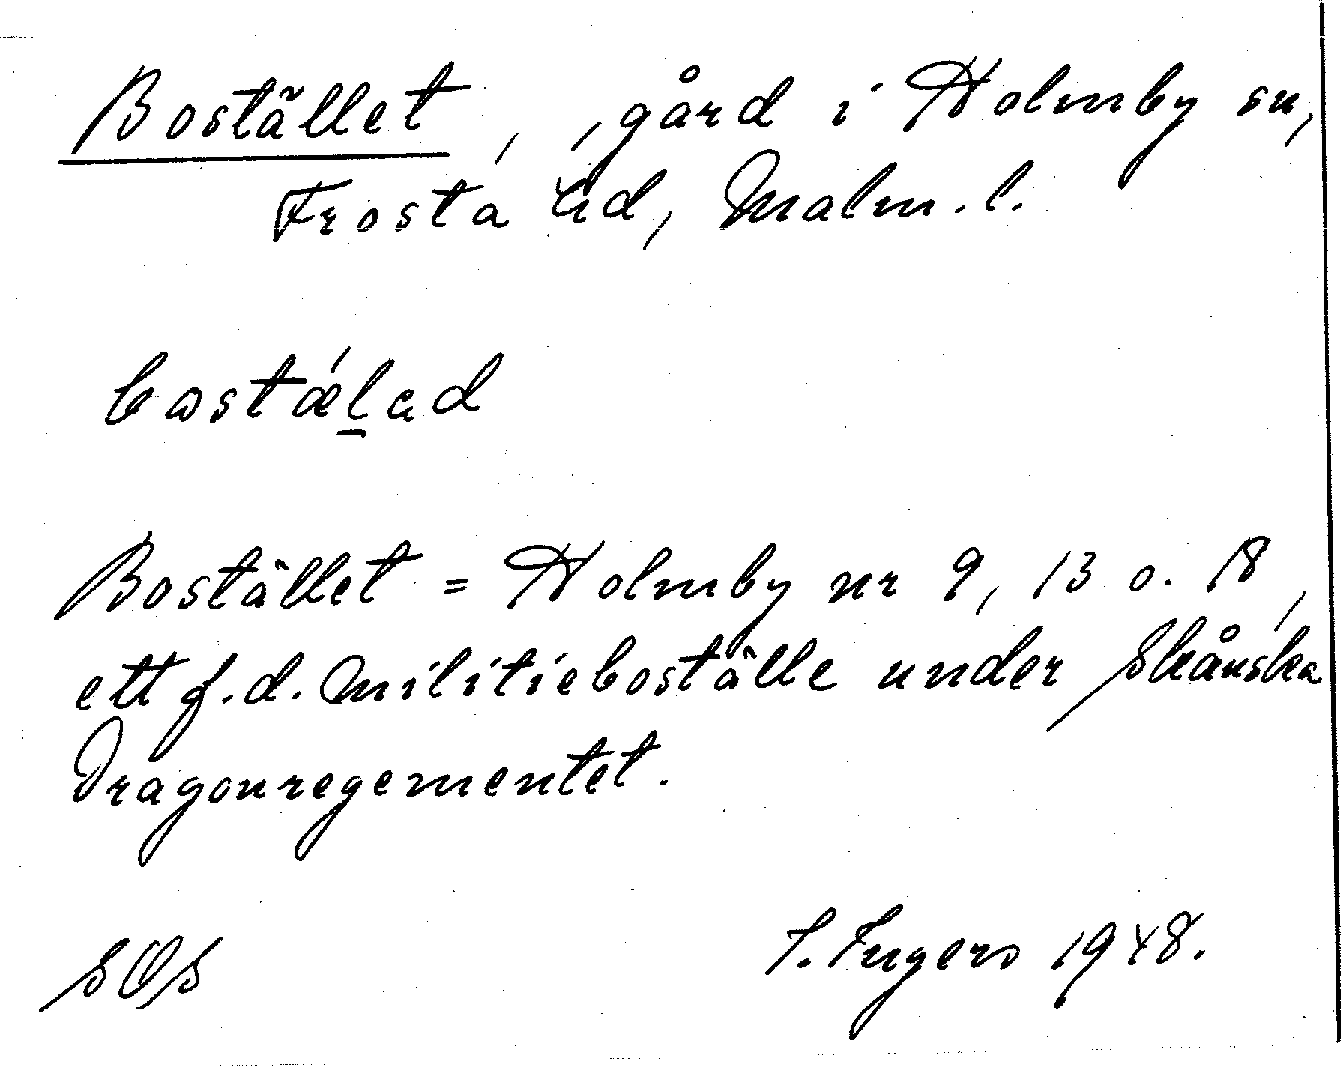 Bostället, gård i Holmby sn,
Frosta hd, Malm. l.
bostǽl̠ad
Bostället = Holmby nr 9, 13 o. 18,
ett f.d. militieboställe under Skånska
Dragonregementet.
I. Ingers 1948.
SOS